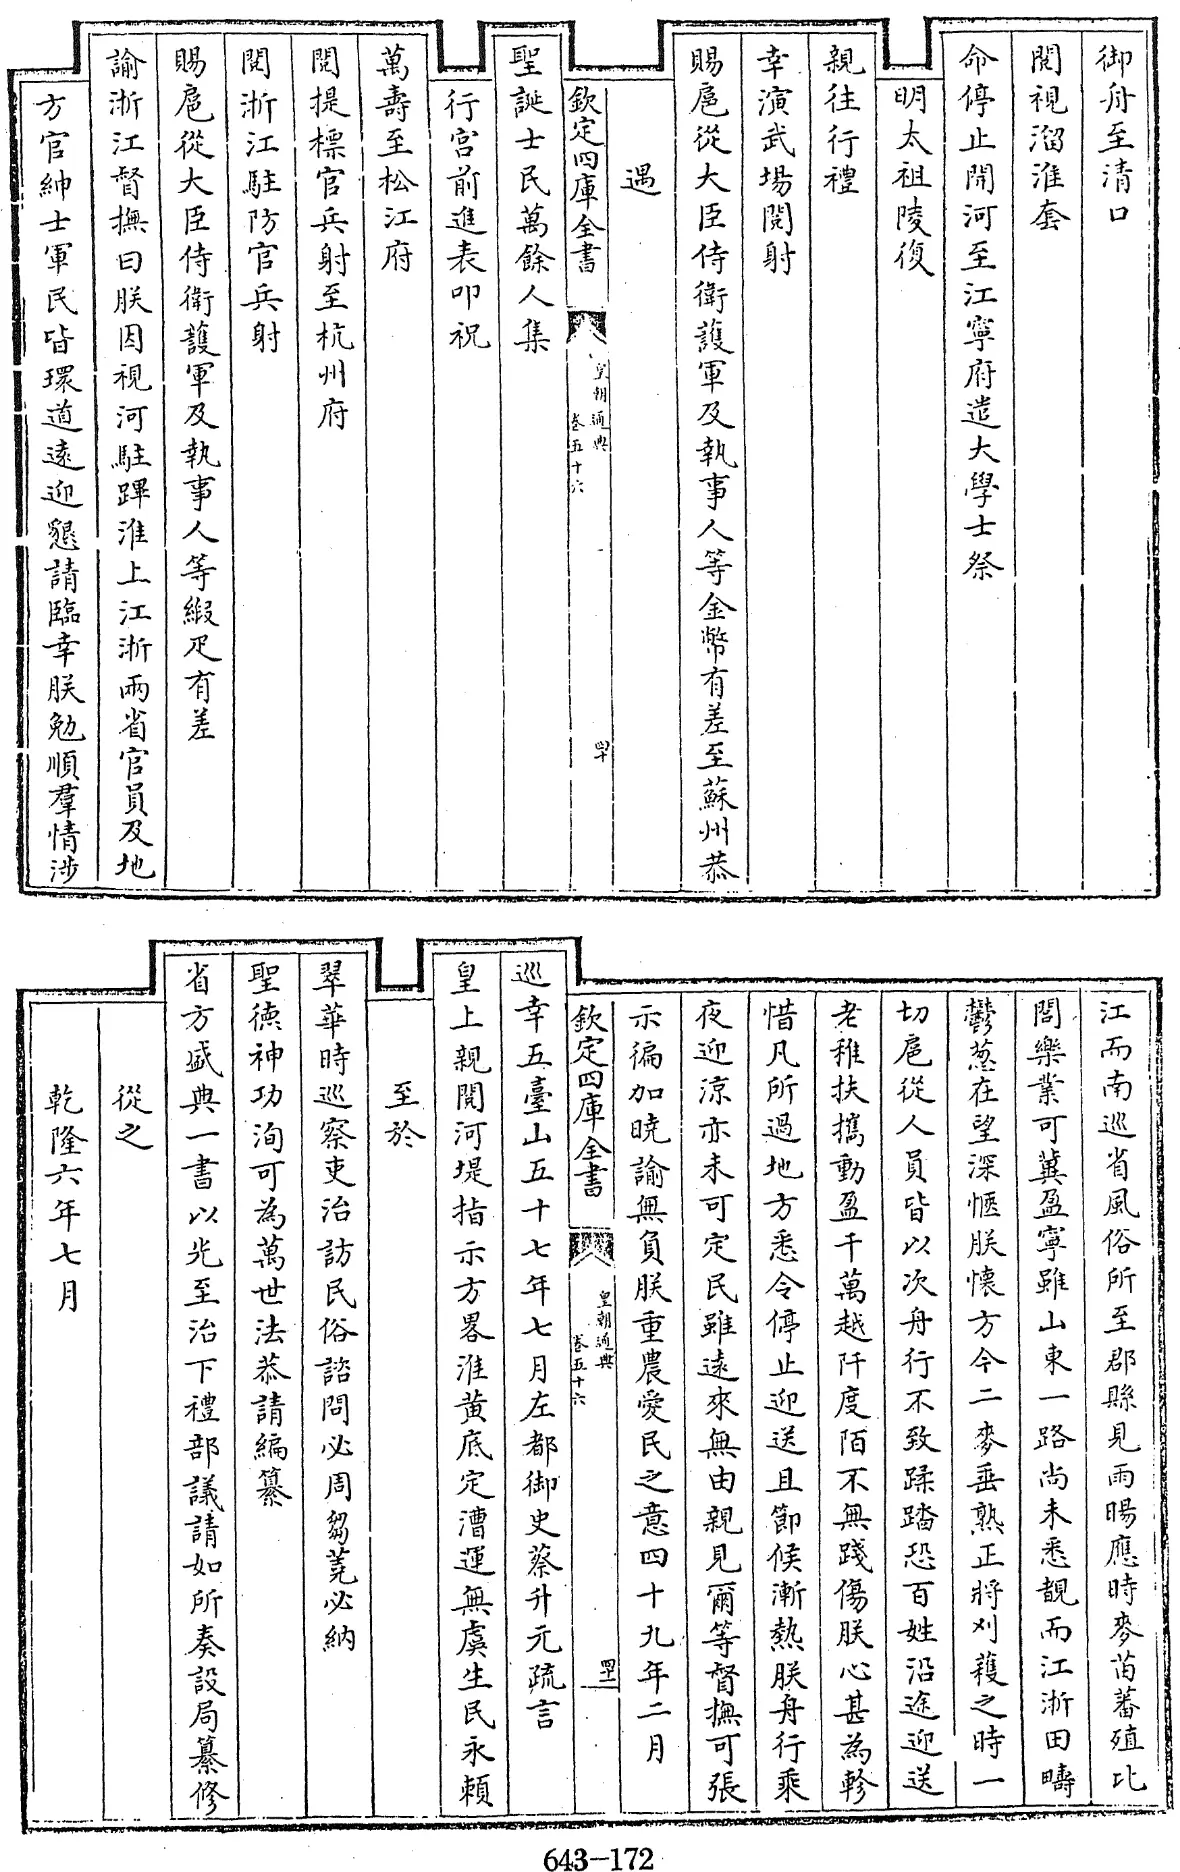 御舟至清口
閱視溜淮套
命停止開河至江寧府遣大學士祭
明太祖陵復
親往行禮
幸演武塲閱射
賜扈從大臣侍衛護軍及執事人等金幣有差至蘇州恭
遇
欽定四庫全書
皇朝通典
卷五十六
四十
聖誕士民萬餘人集
行宮前進表叩祝
萬壽至松江府
閱提標官兵射至杭州府
閱浙江駐防官兵射
賜扈從大臣侍衛護軍及執事人等緞疋有差
諭浙江督撫曰朕因視河駐蹕淮上江浙兩省官員及地
方官紳士軍民皆環道遠迎懇請臨幸朕勉順羣情涉
江而南巡省風俗所至郡縣見雨暘應時麥苗蕃殖比
閭樂業可冀盈寧雖山東一路尚未悉覩而江浙田疇
鬱葱在望深愜朕懷方今二麥垂熟正將刈穫之時一
切扈從人員皆以次舟行不致蹂踏恐百姓沿途迎送
老稚扶攜動盈千萬越阡度陌不無踐傷朕心甚為軫
惜凡所過地方悉令停止迎送且節候漸熱朕舟行乘
夜迎涼亦未可定民雖遠來無由親見爾等督撫可張
示徧加曉諭無負朕重農愛民之意四十九年二月
欽定四庫全書
皇朝通典
卷五十六
四十一
巡幸五臺山五十七年七月左都御史蔡升元疏言
皇上親閱河堤指示方畧淮黄底定漕運無虞生民永賴
至於
翠華時巡察吏治訪民俗諮問必周芻蕘必納
聖德神功洵可為萬世法恭請編纂
省方盛典一書以光至治下禮部議請如所奏設局纂修
從之
乾隆六年七月
643-172